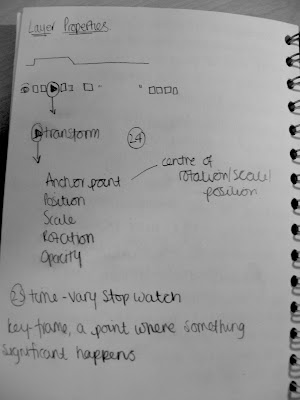 Layer Properties
transform
24
Anchor point
centre of
rotation/scale/
position
Position
Scale
Rotation
Opacity
23 time-vary stop watch
key frame, a point where something
significant happens